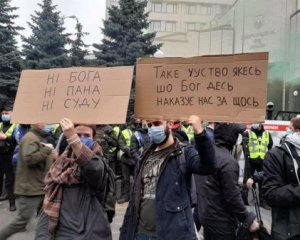 НІ БОГА
НІ ПАНА
НІ СУДУ
ТАКЕ ЧУСТВО ЯКЕСЬ
ШО БОГ ДЕСЬ
НАКАЗУЄ НАС ЗА ЩОСЬ